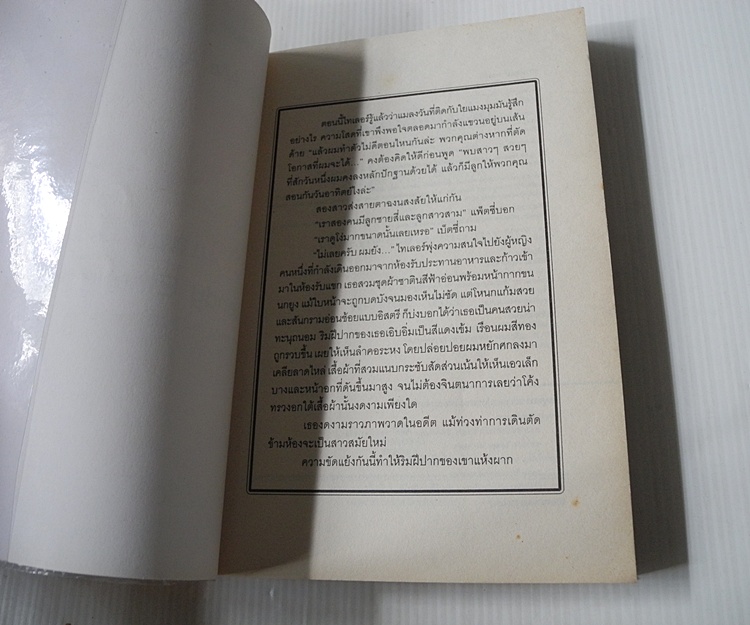 ตอนนี้ไทเลอร์รู้แล้วว่าแมลงวันที่ติดกับใยแมงมุมมันรู้สึก
อย่างไร ความโสดที่เขาพึงพอใจตลอดมากำลังแขวนอยู่บนเส้น
ด้าย “แล้วผมทำตัวไม่ดีตอนไหนกันล่ะ พวกคุณต่างหากที่ตัด
โอกาสที่ผมจะได้...” คงต้องคิดให้ดีก่อนพูด “พบสาวๆ สวยๆ
ที่สักวันหนึ่งผมคงลงหลักปักฐานด้วยได้ แล้วก็มีลูกให้พวกคุณ
สอนกันวันอาทิตย์ไงล่ะ”
สองสาวส่งสายตาฉงนสงสัยให้แก่กัน
“เราสองคนมีลูกชายสี่และลูกสาวสาม” แพ็ตซี่บอก
“เราดูโง่มากขนาดนั้นเลยเหรอ” เบ็ตซี่ถาม
“ไม่เลยครับ ผมยัง...” ไทเลอร์พุ่งความสนใจไปยังผู้หญิง
คนหนึ่งที่กำลังเดินออกมาจากห้องรับประทานอาหารและก้าวเข้า
มาในห้องรับแขก เธอสวมชุดผ้าซาตินสีฟ้าอ่อนพร้อมหน้ากากขน
นกยูง แม้ใบหน้าจะถูกบดบังจนมองเห็นไม่ชัด แต่โหนกแก้มสวย
และสันกรามอ่อนช้อยแบบอิสตรี ก็บ่งบอกได้ว่าเธอเป็นคนสวยน่า
ทะนุถนอม ริมฝีปากของเธออิบอิ่มเป็นสีแดงเข้ม เรือนผมสีทอง
ถูกรวบขึ้น เผยให้เห็นลำคอระหง โดยปล่อยปอยผมหยักศกลงมา
เคลียลาดไหล่ เสื้อผ้าที่สวมแนบกระชับสัดส่วนเน้นให้เห็นเอวเล็ก
บางและหน้าอกที่ดันขึ้นมาสูง จนไม่ต้องจินตนาการเลยว่าโค้ง
ทรวงอกใต้เสื้อผ้านั้นงดงามเพียงใด
เธองดงามราวภาพวาดในอดีต แม้ท่วงท่าการเดินตัด
ข้ามห้องจะเป็นสาวสมัยใหม่
ความขัดแย้งกันนี้ทำให้ริมฝีปากของเขาแห้งผาก